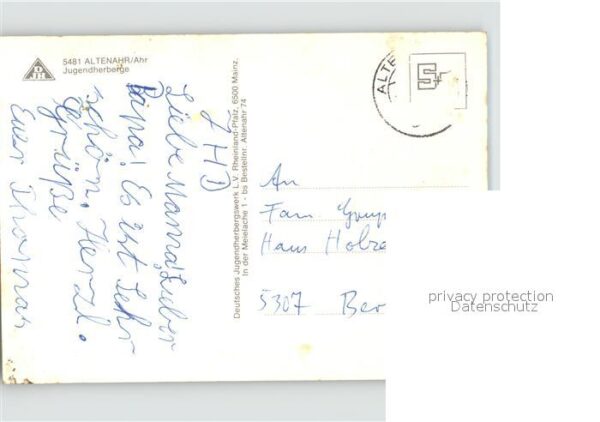 DJH
5481 ALTENAHR/Ahr
Jugendherberge
ALTE
Deutsches Jugendherbergswerk L.V. Rheinland-Pfalz, 6500 Mainz,
In der Meielache 1 - bs Bestellnr. Altenahr 74
LHD
Liebe Mama! Lieber
Papa! Es ist Sehr
schön. Herzl.
Grüße
Euer Thomas
An
Fam.
Hans
5307 Ber
privacy protection
Datenschutz